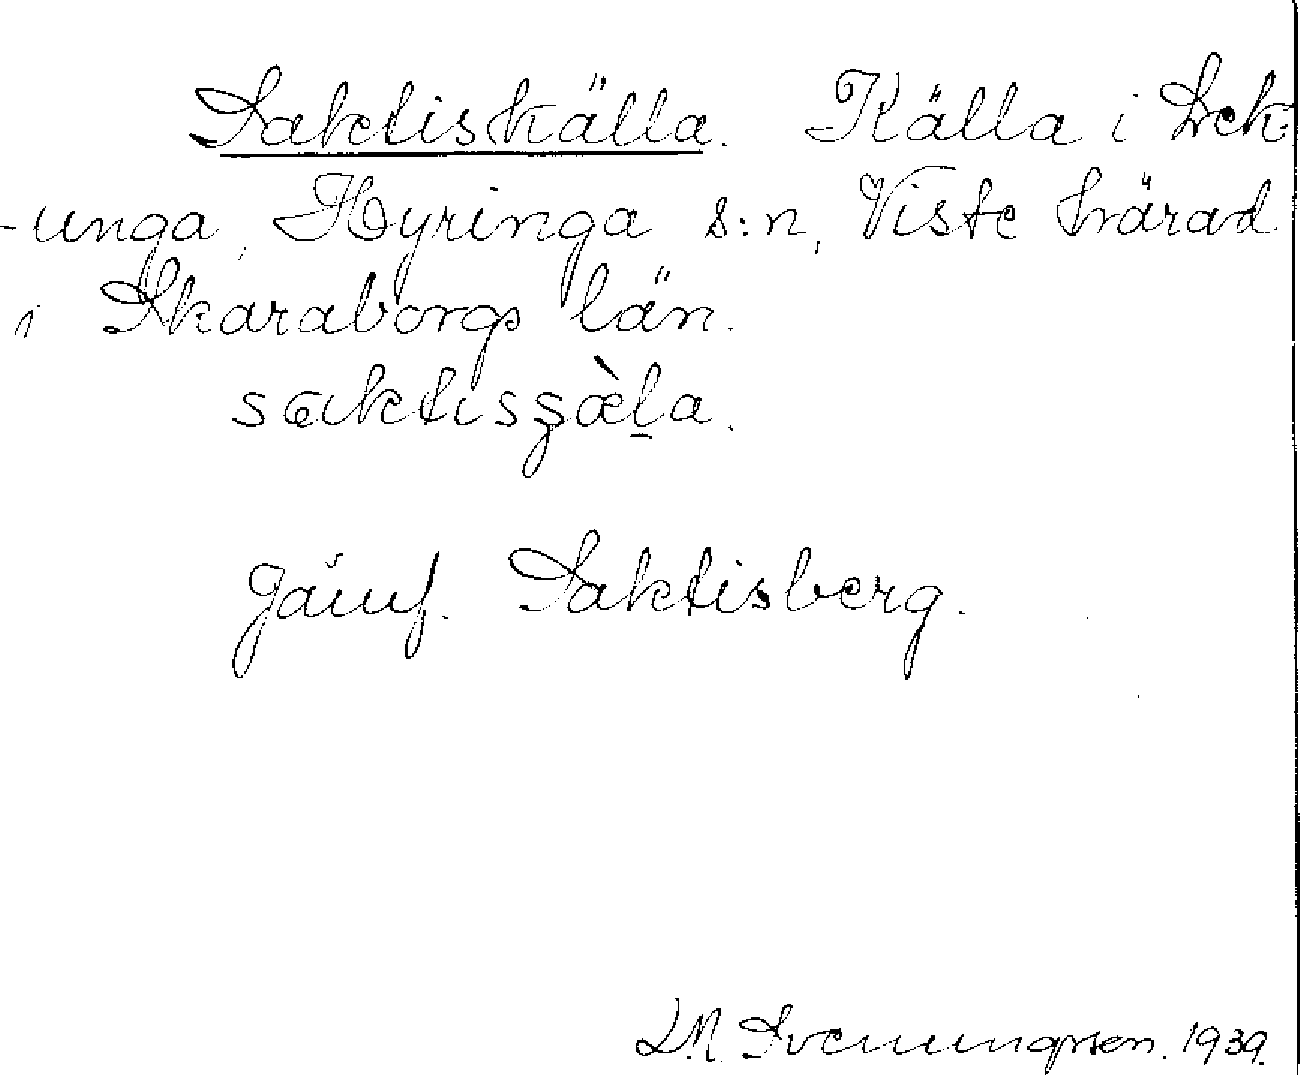 Saktiskälla. Källa i Lek-
-unga, Hyringa s:n, Viste härad
i Skaraborgs län.
saktisʂàla.
Jämf. Saktisberg.
Svenungsson. 1939.